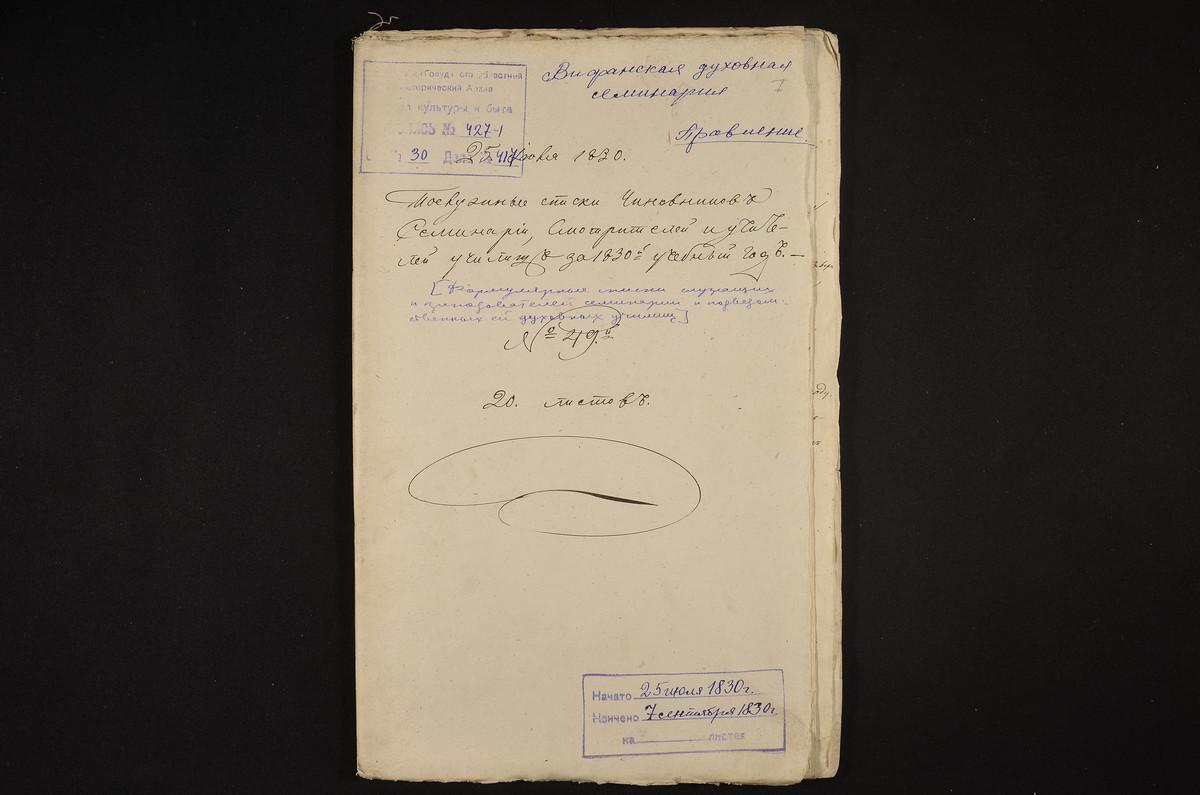 Госуд Областной
Исторический Архив
культуры и быта
ОПИСЬ № 427-1
30 417
Вифанская духовная
семинария
Правление.
25 Июля 1830.
Послужные списки Чиновниковъ
Семинаріи, Смотрителей и учите-
лей училищъ за 1830й учебный годъ. —
[Формулярные списки служащих
и преподавателей семинарии и подведом-
ственных ей духовных училищ]
№ 49.й
20. листовъ.
Начато 25 июля 1830 г.
Кончено 7 сентября 1830 г.
на листах